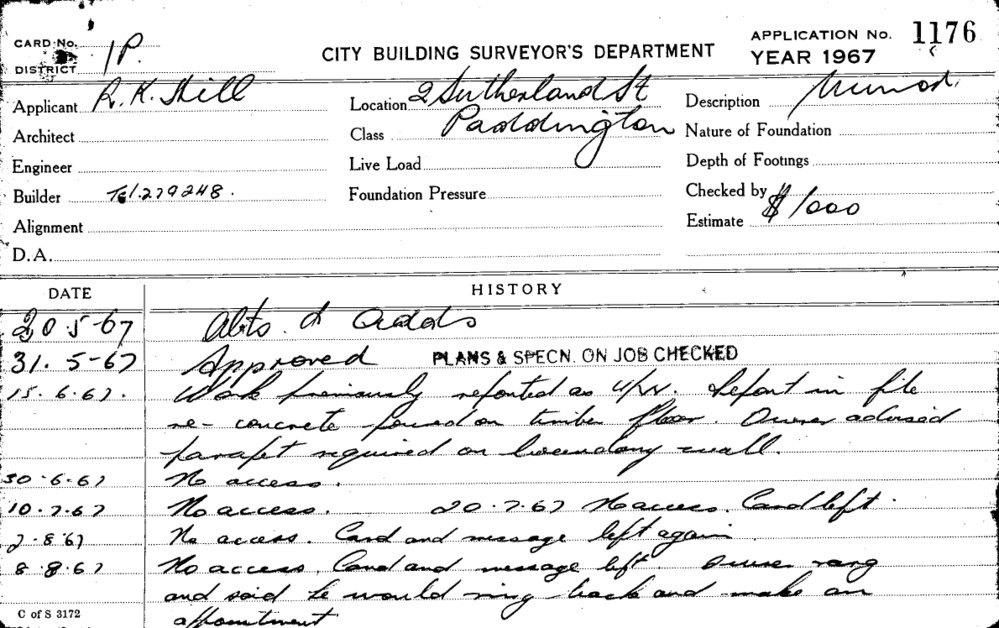 CARD No.
DISTRICT 1P.
CITY BUILDING SURVEYOR'S DEPARTMENT
APPLICATION No. 1176
YEAR 1967
Applicant R. K. Hill
Location 2 Sutherland St
Description
Architect
Class Paddington
Nature of Foundation
Engineer
Live Load
Depth of Footings
Builder Tel. 279248.
Foundation Pressure
Checked by
Estimate $1000
Alignment
D.A.
DATE HISTORY
20 5-67 Alts. & Adds
31. 5-67 Approved PLANS & SPECN. ON JOB CHECKED
15. 6.67. Work previously reported as U/W. Report in file
re- concrete poured on timber floor. Owner advised
parapet required on boundary wall.
30-6-67 No access.
10.7.67 No access. 20.7.67 No access. Card left.
2-8-67 No access. Card and message left again
8.8.67 No access. Card and message left. Owner rang
and said he would ring back and make an
appointment
C of S 3172